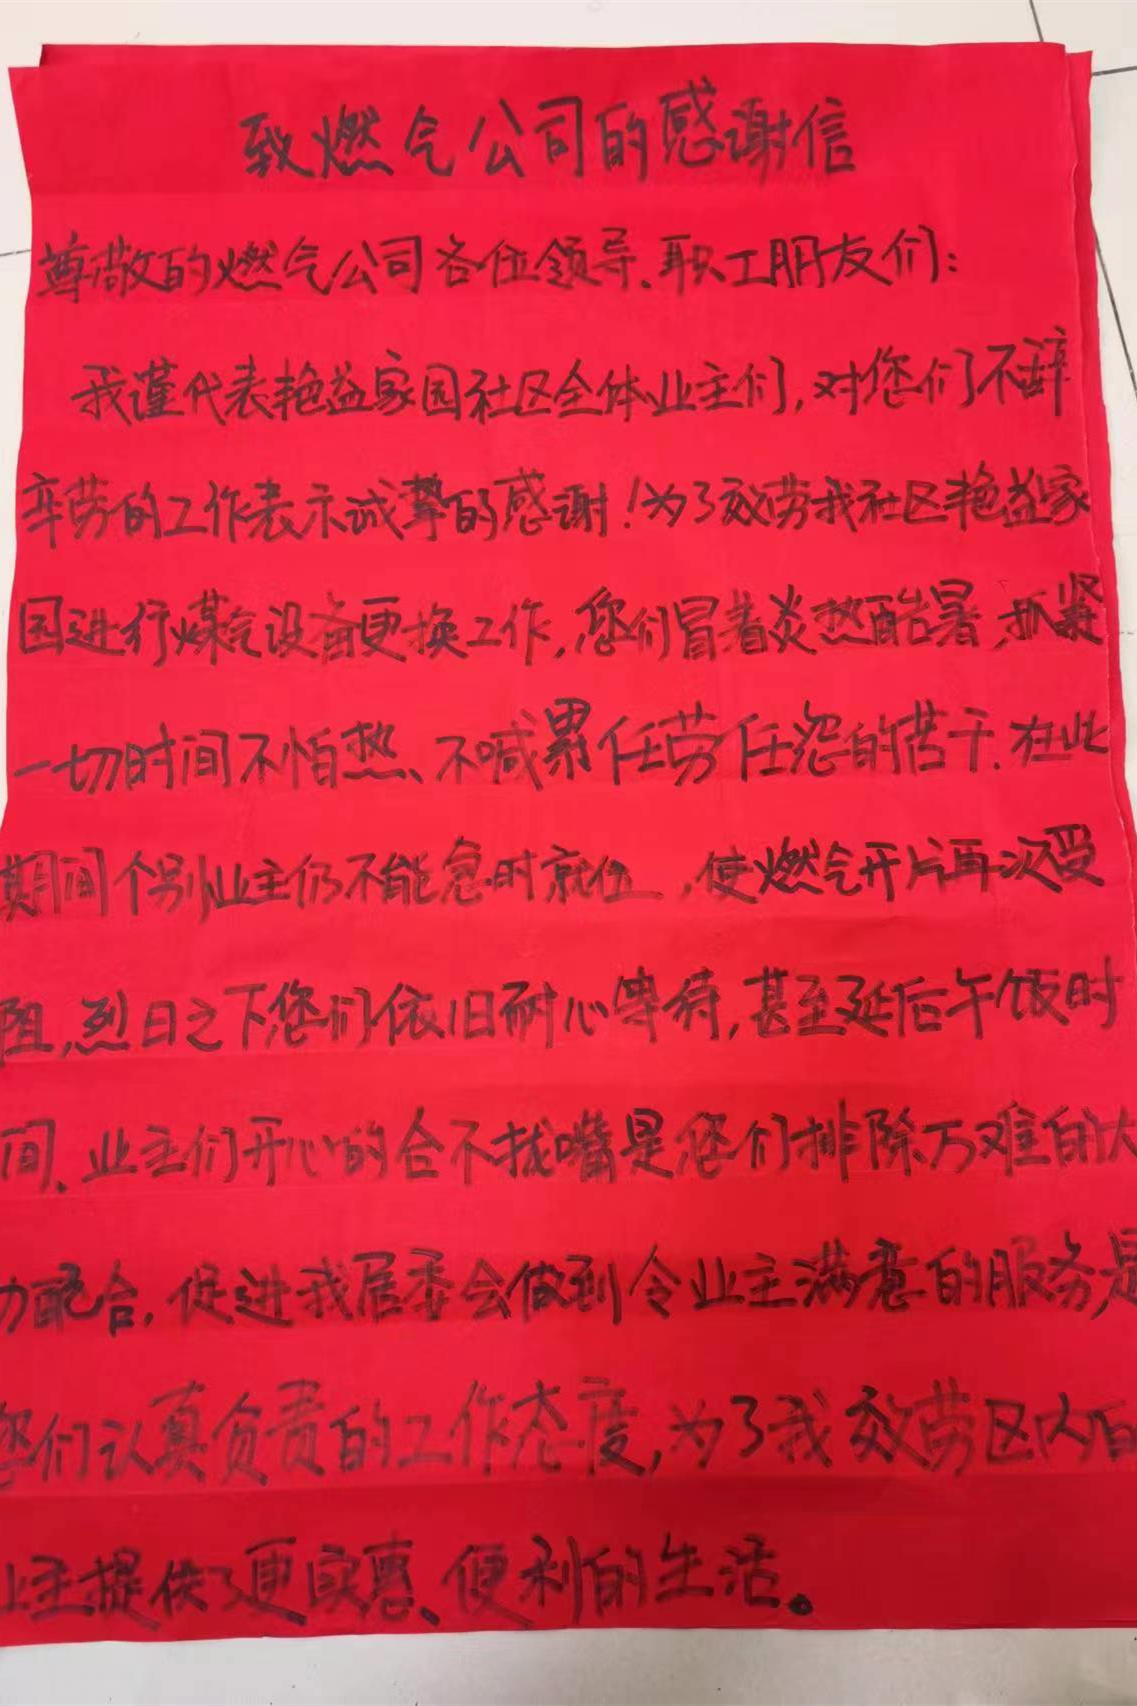 致燃气公司的感谢信
尊敬的燃气公司各位领导、职工朋友们：
我谨代表艳益家园社区全体业主们，对您们不辞
辛劳的工作表示诚挚的感谢！为了效劳我社区艳益家
园进行煤气设备更换工作，您们冒着炎热酷暑，抓紧
一切时间不怕热、不喊累任劳任怨的苦干.在此
期间个别业主仍不能急时就位，使燃气开片再次受
阻，烈日之下您们依旧耐心等待，甚至延后午饭时
间、业主们开心的合不拢嘴是您们排除万难的大
力配合，促进我居委会做到令业主满意的服务，是
您们认真负责的工作态度，为了我效劳区内的
业主提供了更实惠、便利的生活。